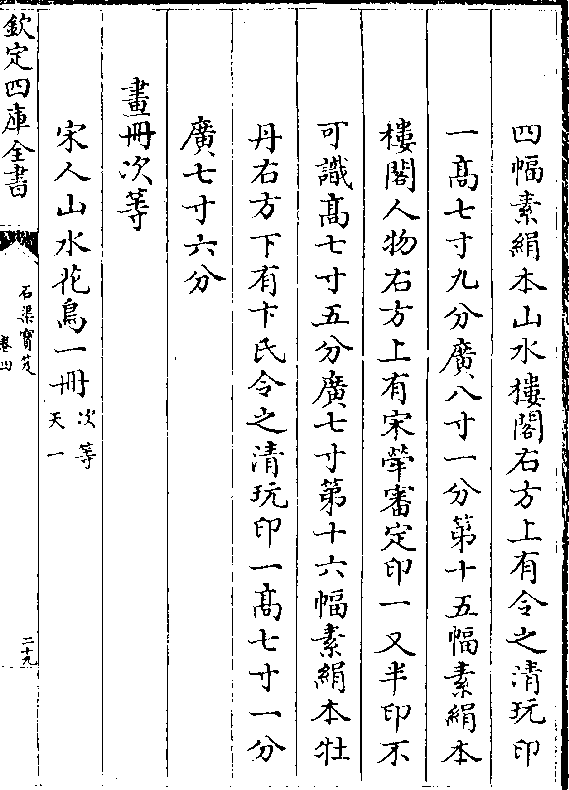 四幅素絹本山水樓閣右方上有令之清玩印
一髙七寸九分廣八寸一分第十五幅素絹本
樓閣人物右方上有宋犖審定印一又半印不
可識髙七寸五分廣七寸第十六幅素絹本牡
丹右方下有卞氏令之清玩印一髙七寸一分
廣七寸六分
畫冊次等
宋人山水花鳥一冊次等天一
欽定四庫全書
石渠寳笈
卷四
二十九